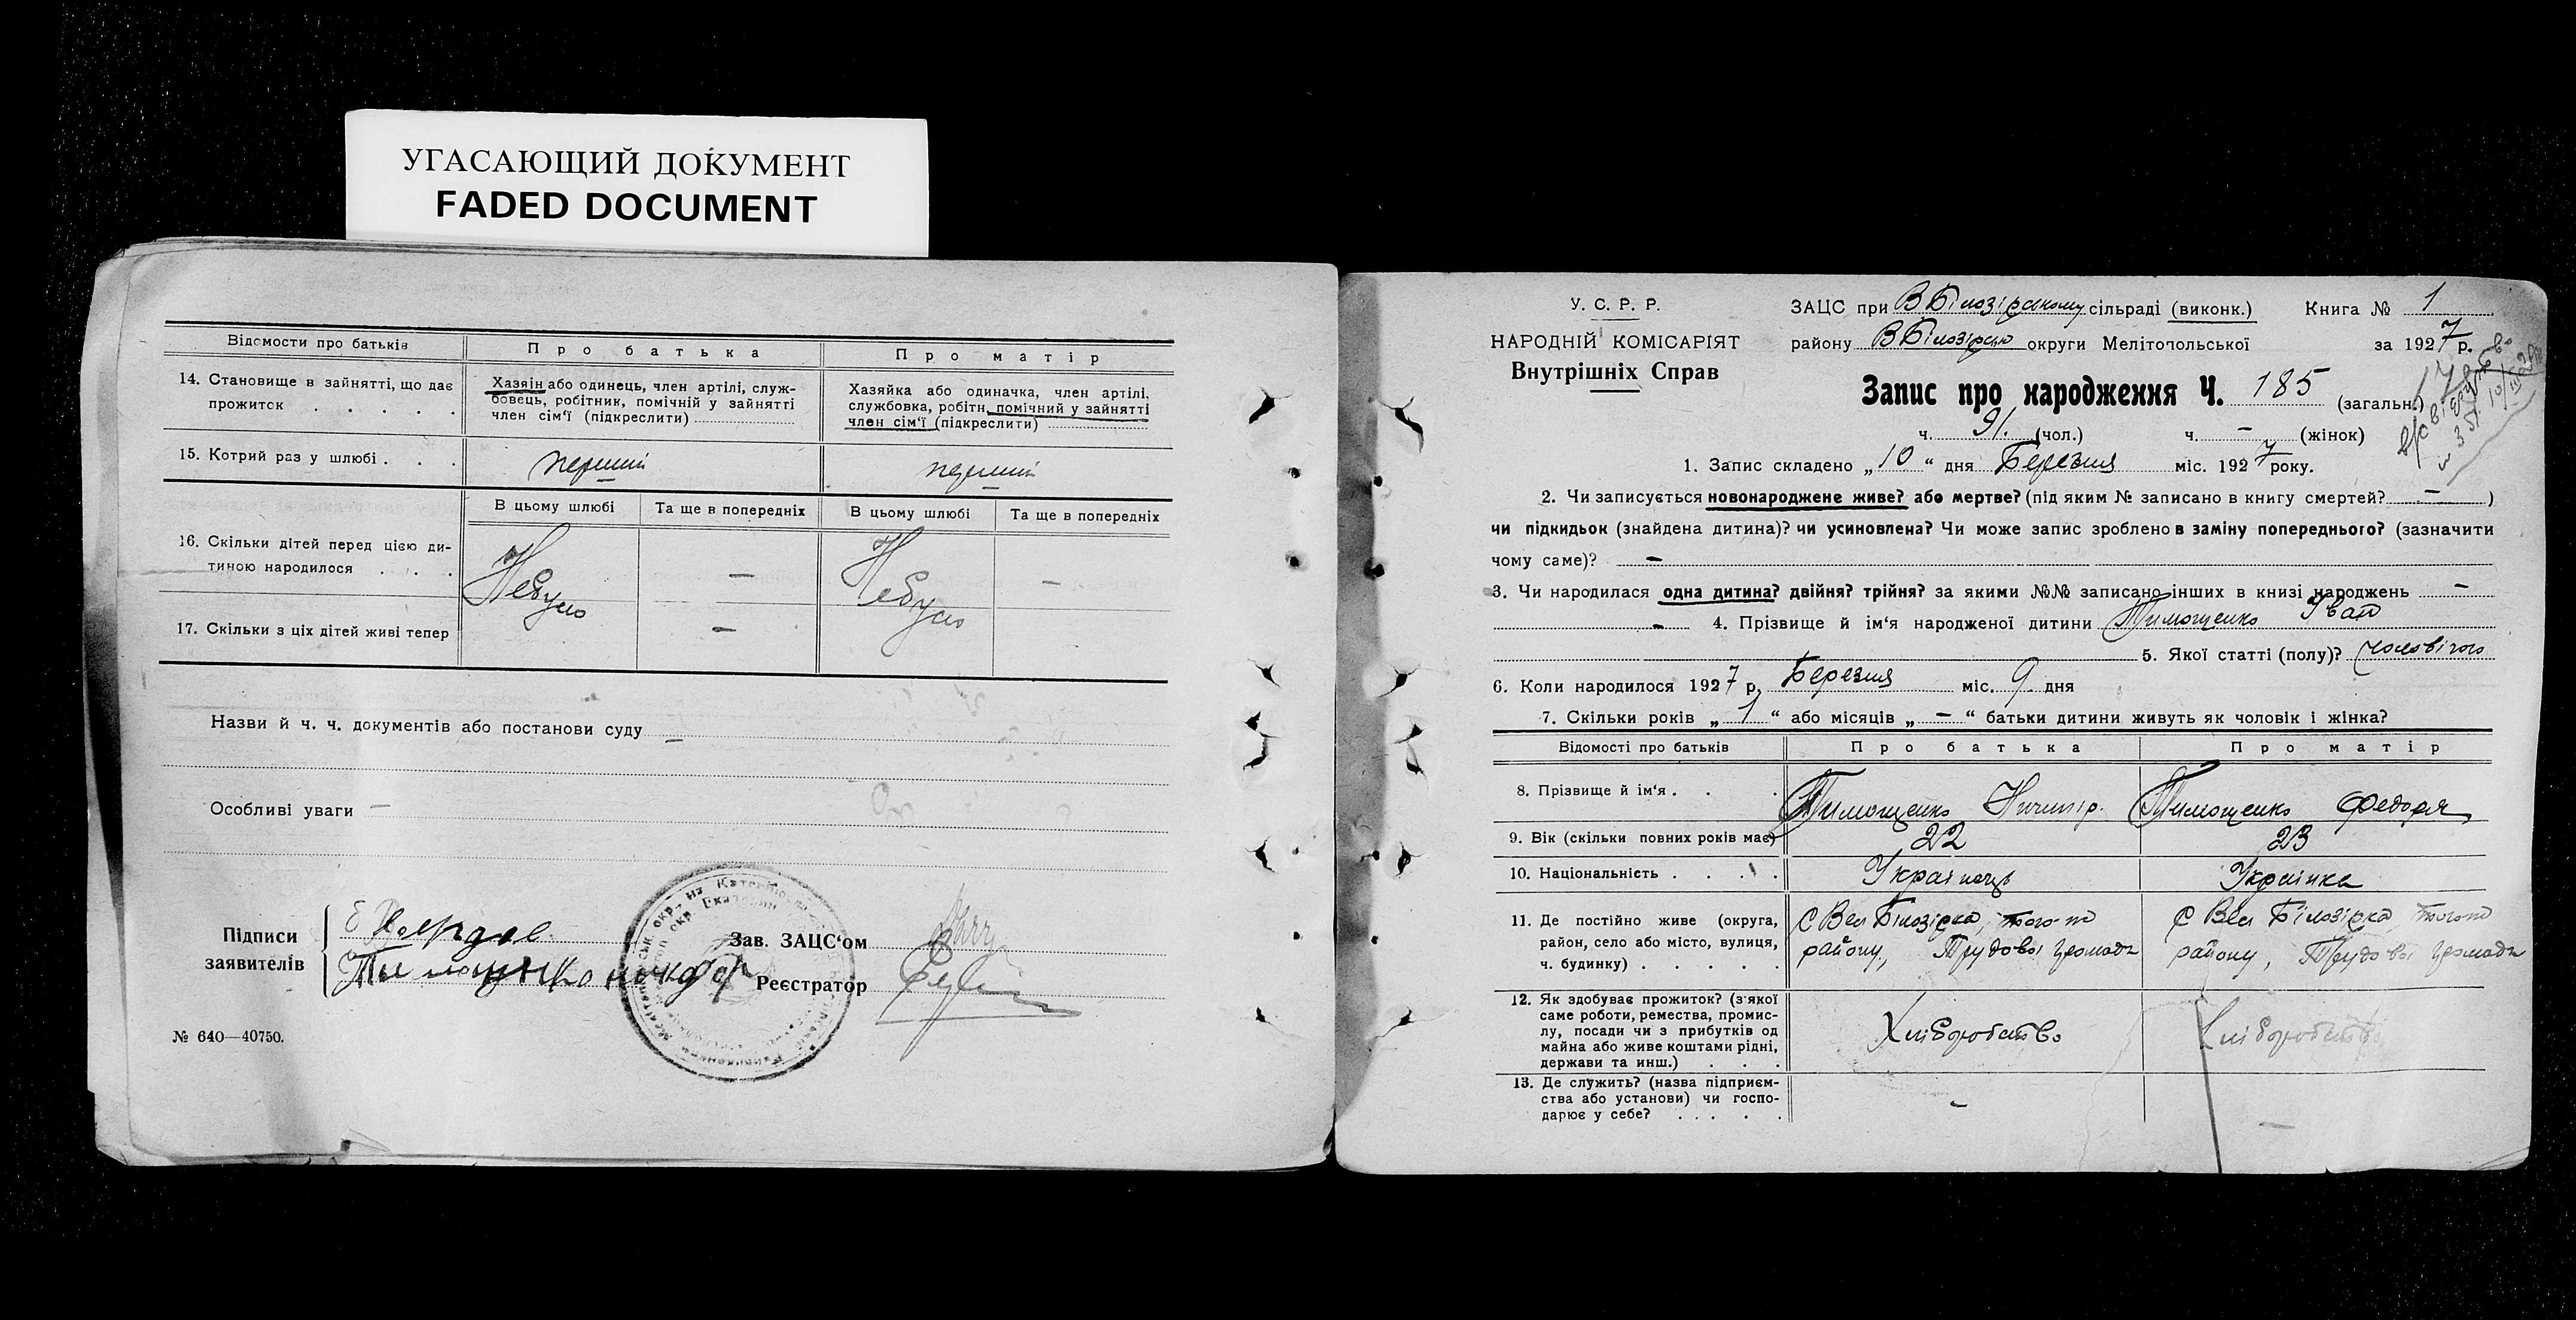 УГАСАЮЩИЙ ДОКУМЕНТ
FADED DOCUMENT
Відомости про батьків
Про батька
Про матір
14. Становище в зайнятті, що дає
прожиток . . . . .
Хазяін або одинець, член артілі, служ-
бовець, робітник, помічній у зайнятті
член сім'ї (підкреслити)
Хазяйка або одиначка, член артілі,
службовка, робітн, помічний у зайнятті
член сім'ї (підкреслити)
15. Котрий раз у шлюбі . . .
перший
перший
В цьому шлюбі
Та ще в попередніх
В цьому шлюбі
Та ще в попередніх
16. Скільки дітей перед цією ди-
тиною народилося . . .
Небуло
—
Небуло
—
17. Скільки з ціх дітей живі тепер
—
Назви й ч. ч. документів або постанови суду —
Особливі уваги —
Підписи
заявителів
Тимощенко
Зав. ЗАЦС'ом
Реєстратор
№ 640—40750.
У. С. Р. Р.
НАРОДНІЙ КОМІСАРІЯТ
Внутрішніх Справ
ЗАЦС при ВБілозірському сільраді (виконк.) Книга № 1
району ВБілозірсько округи Мелітопольської за 1927 р.
Запис про народження Ч. 185 (загальн.)
ч. 91. (чол.) ч. — (жінок)
1. Запис складено „10“ дня Березня міс. 1927 року.
2. Чи записується новонароджене живе? або мертве? (під яким № записано в книгу смертей? — )
чи підкидьок (знайдена дитина)? чи усиновлена? Чи може запис зроблено в заміну попереднього? (зазначити
чому саме)? —
3. Чи народилася одна дитина? двійня? трійня? за якими №№ записано інших в книзі народжень —
— 4. Прізвище й ім'я народженої дитини Тимощенко Іван
5. Якої статті (полу)? Чоловічого
6. Коли народилося 1927 р. Березня міс. 9 дня
7. Скільки років „1“ або місяців „—“ батьки дитини живуть як чоловік і жінка?
Відомості про батьків
Про батька
Про матір
8. Прізвище й ім'я . . .
Тимощенко Ничипір.
Тимощенко Федоря
9. Вік (скільки повних років має)
22
23
10. Національність . . . .
Українець
Українка
11. Де постійно живе (округа,
район, село або місто, вулиця,
ч. будинку) . . . . .
С Вел Білозірка, того-ж
району, Трудової громади
С Вел Білозірка, того-ж
району, Трудової громади
12. Як здобуває прожиток? (з якої
саме роботи, ремества, промис-
лу, посади чи з прибутків од
майна або живе коштами рідні,
держави та инш.) . . .
Хліборобство
Хліборобство
13. Де служить? (назва підприєм-
ства або установи) чи госпо-
дарює у себе? . . . .
—
—